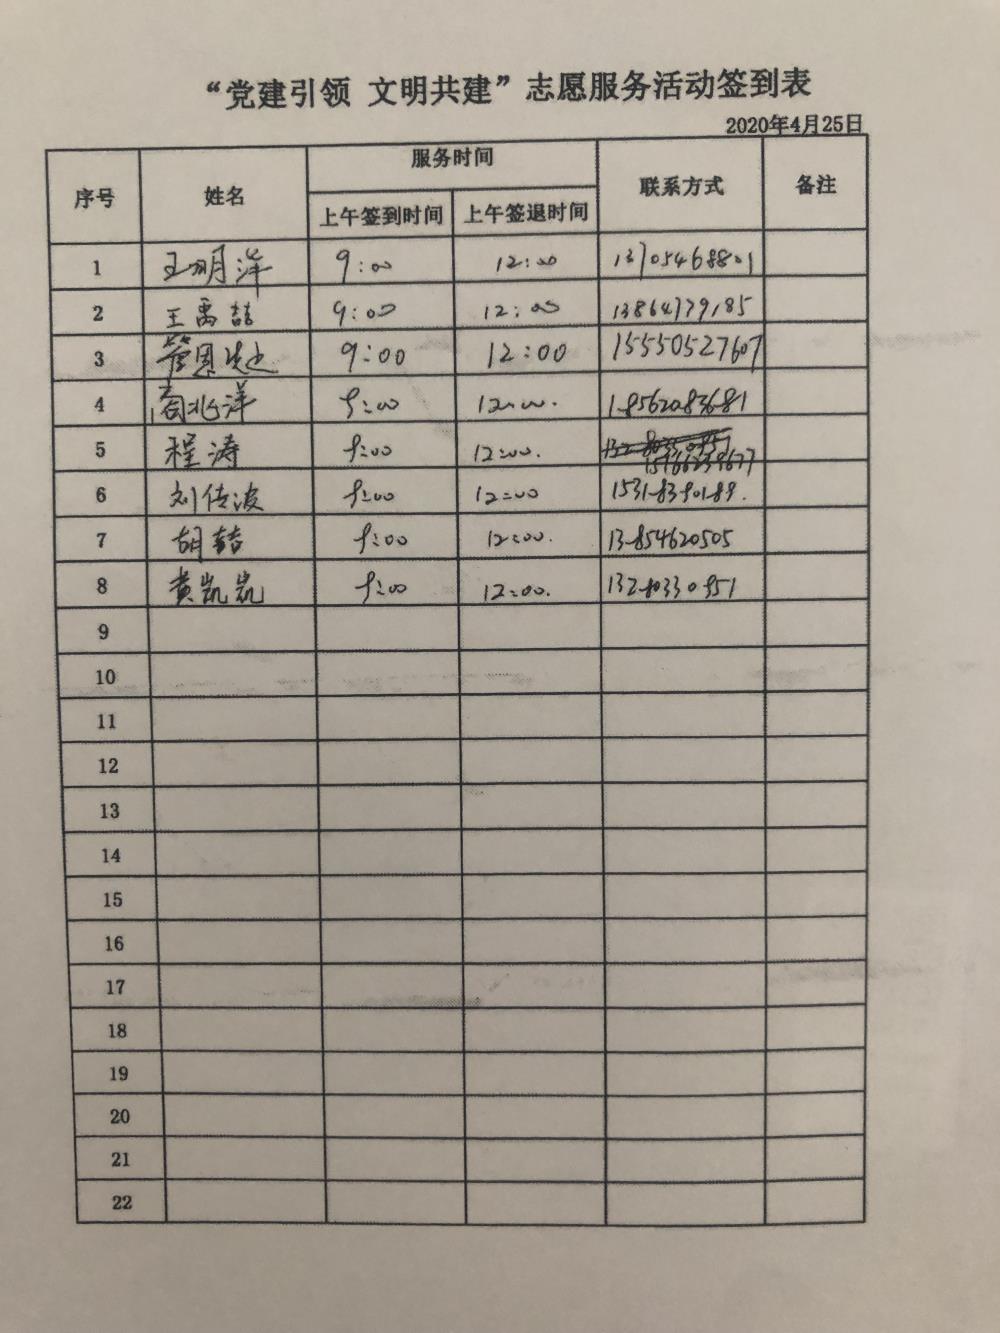 “党建引领 文明共建”志愿服务活动签到表
2020年4月25日
序号 姓名 服务时间 联系方式 备注
上午签到时间 上午签退时间
1 王明洋 9:00 12:00 13705468801
2 王禹喆 9:00 12:00 13864779185
3 管恩 9:00 12:00 15550527607
4 商兆洋 9:00 12:00. 18562083681
5 程涛 9:00 12:00.
6 刘传波 9:00 12:00 15318390189.
7 胡喆 9:00 12:00. 13854620505
8 黄凯凯 9:00 12:00. 13280330951
9
10
11
12
13
14
15
16
17
18
19
20
21
22